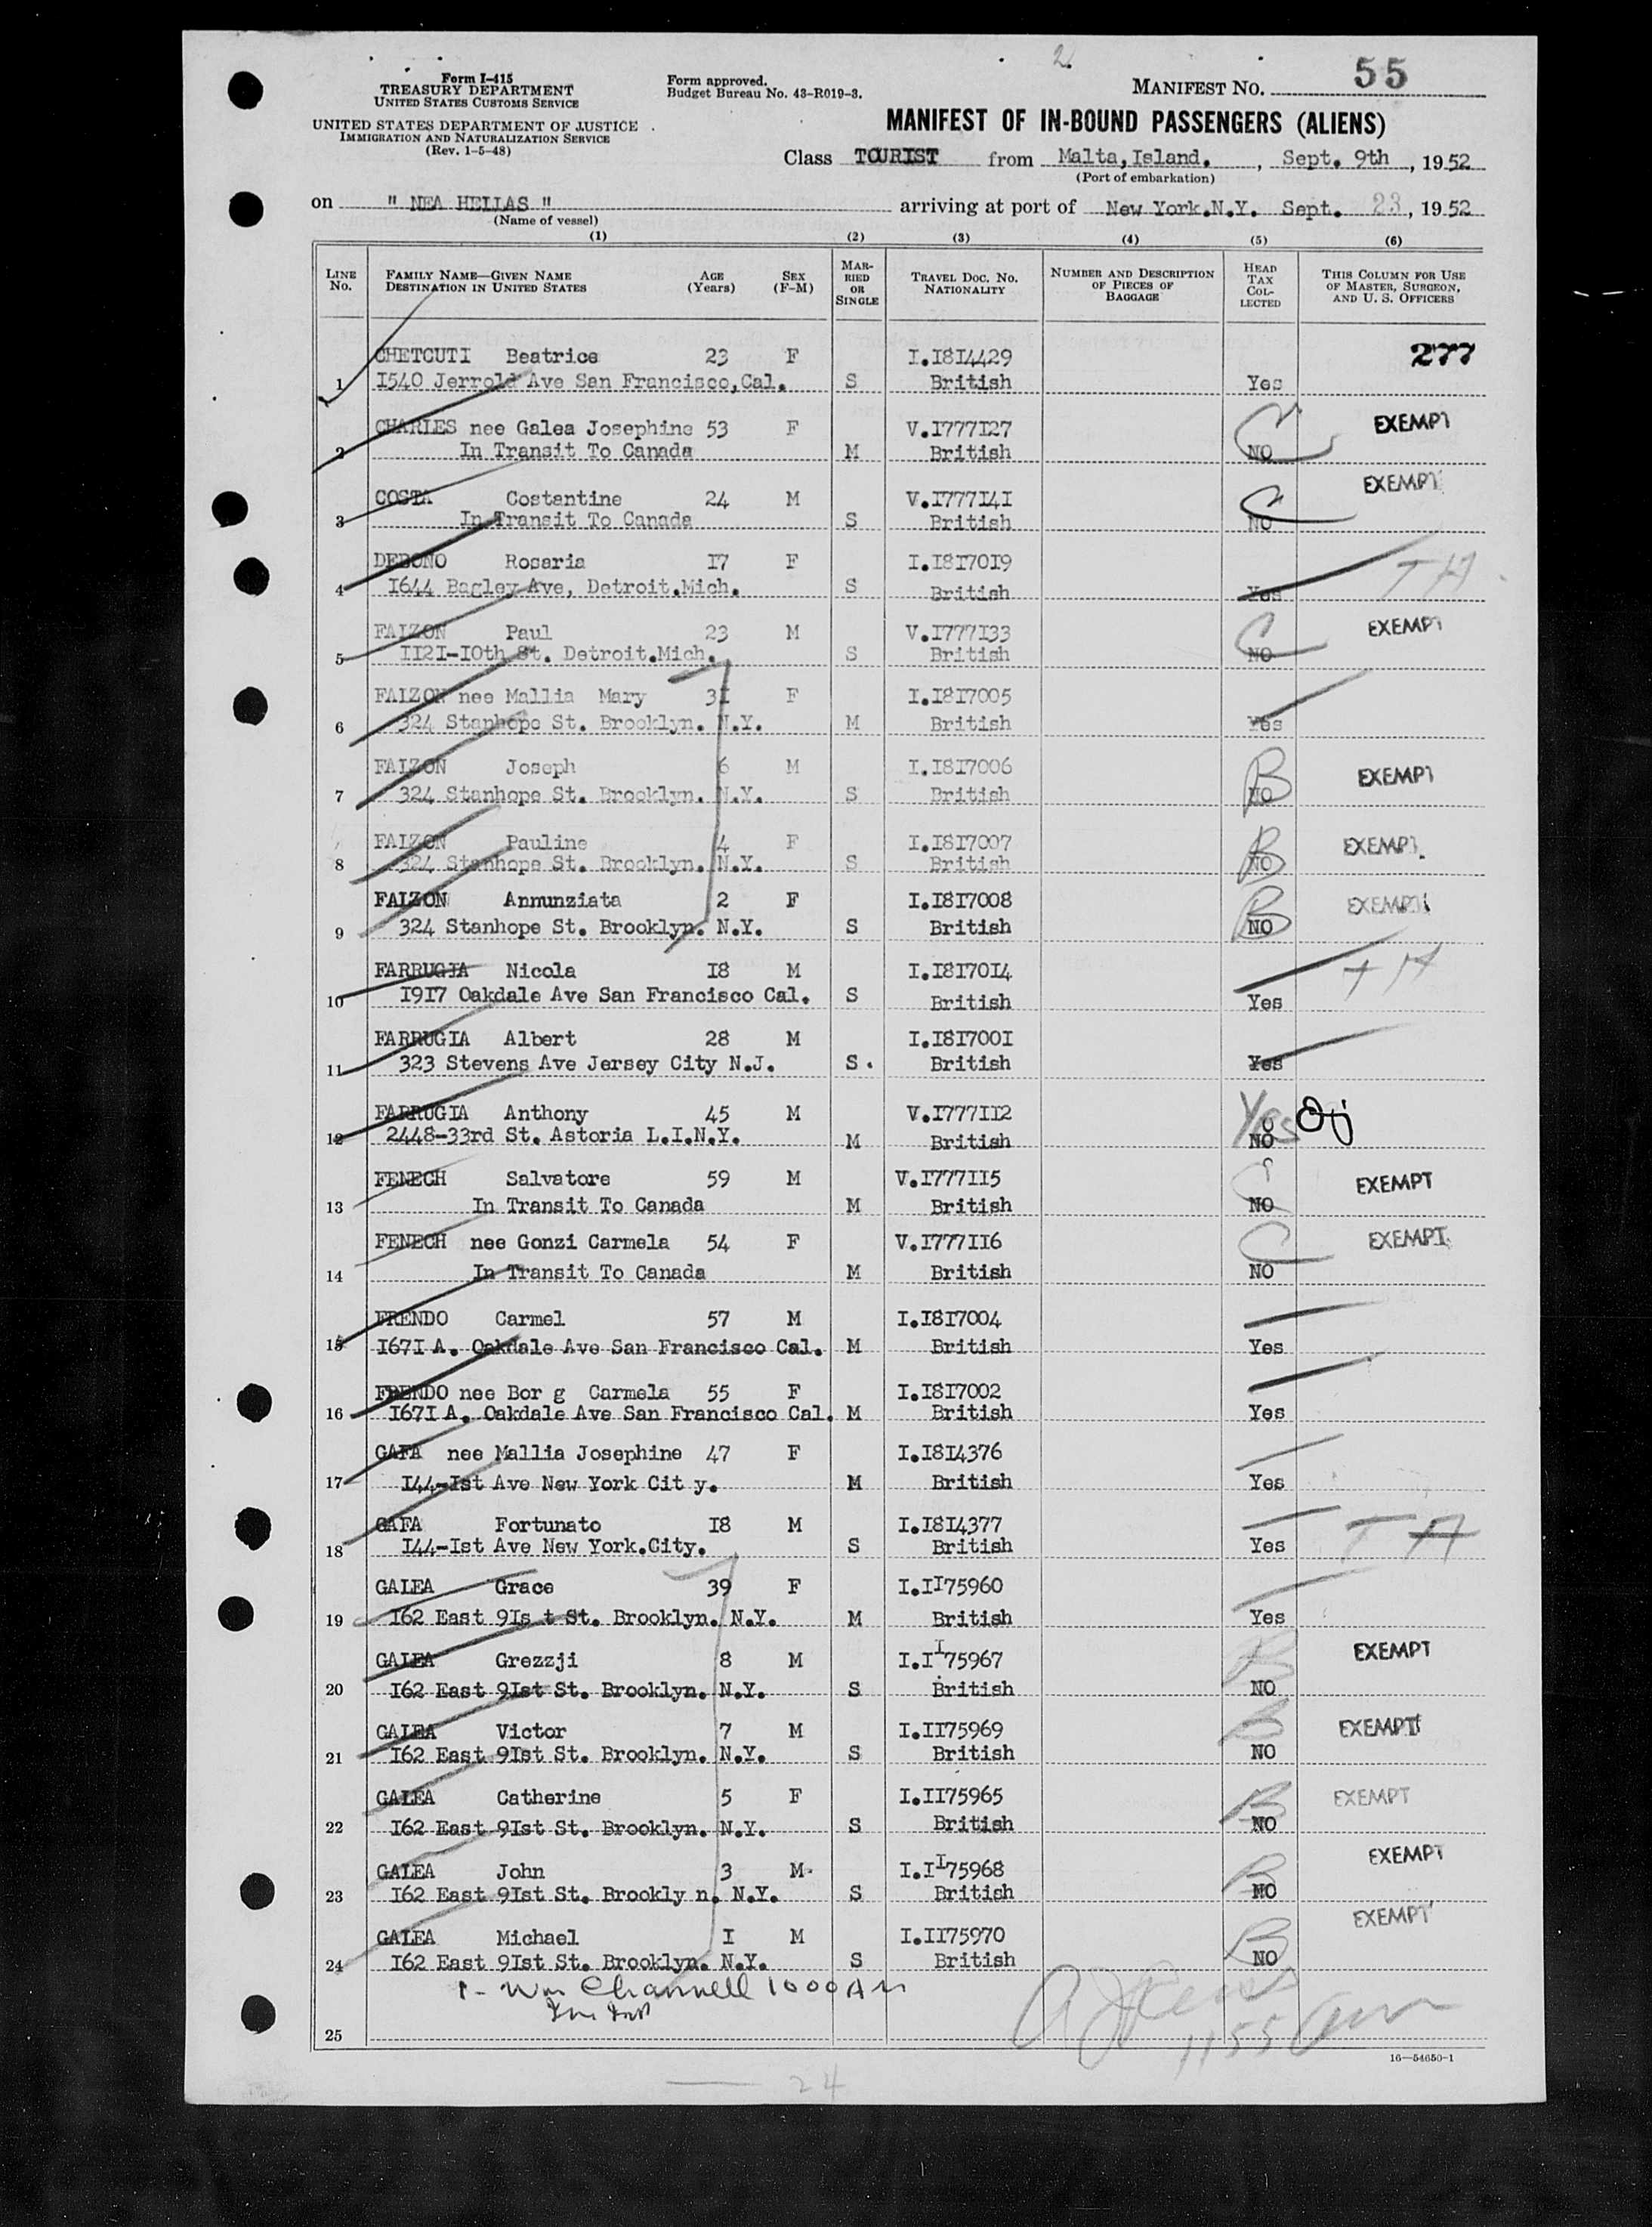 2
Form I-415
TREASURY DEPARTMENT
UNITED STATES CUSTOMS SERVICE
UNITED STATES DEPARTMENT OF JUSTICE
IMMIGRATION AND NATURALIZATION SERVICE
(Rev. 1-5-48)
Form approved.
Budget Bureau No. 43-R019-3.
MANIFEST NO. 55
MANIFEST OF IN-BOUND PASSENGERS (ALIENS)
Class TOURIST from Malta,Island. , Sept. 9th , 1952
(Port of embarkation)
on " NEA HELLAS " arriving at port of New York.N.Y. Sept. 23, 1952
(Name of vessel)
(1) (2) (3) (4) (5) (6)
LINE No. FAMILY NAME—GIVEN NAME DESTINATION IN UNITED STATES AGE (Years) SEX (F-M) MARRIED OR SINGLE TRAVEL DOC. NO. NATIONALITY NUMBER AND DESCRIPTION OF PIECES OF BAGGAGE HEAD TAX COLLECTED THIS COLUMN FOR USE OF MASTER, SURGEON, AND U. S. OFFICERS
CHETCUTI Beatrice 23 F I.I8I4429 277
1 I540 Jerrold Ave San Francisco,Cal. S British Yes
CHARLES nee Galea Josephine 53 F V.I777I27 C EXEMPT
2 In Transit To Canada M British NO
COSTA Costantine 24 M V.I777I4I C EXEMPT
3 In Transit To Canada S British NO
DEBONO Rosaria I7 F I.I8I70I9 TA
4 I644 Bagley Ave, Detroit.Mich. S British Yes
FAIZON Paul 23 M V.I777I33 C EXEMPT
5 II2I-I0th St. Detroit.Mich. S British NO
FAIZON nee Mallia Mary 3I F I.I8I7005
6 324 Stanhope St. Brooklyn. N.Y. M British Yes
FAIZON Joseph 6 M I.I8I7006 B EXEMPT
7 324 Stanhope St. Brooklyn. N.Y. S British NO
FAIZON Pauline 4 F I.I8I7007 B EXEMPT
8 324 Stanhope St. Brooklyn. N.Y. S British NO
FAIZON Annunziata 2 F I.I8I7008 B EXEMPT
9 324 Stanhope St. Brooklyn. N.Y. S British NO
FARRUGIA Nicola I8 M I.I8I70I4 TA
10 I9I7 Oakdale Ave San Francisco Cal. S British Yes
FARRUGIA Albert 28 M I.I8I700I
11 323 Stevens Ave Jersey City N.J. S. British Yes
FARRUGIA Anthony 45 M V.I777II2 Yes
12 2448-33rd St. Astoria L.I.N.Y. M British NO
FENECH Salvatore 59 M V.I777II5 C EXEMPT
13 In Transit To Canada M British NO
FENECH nee Gonzi Carmela 54 F V.I777II6 C EXEMPT
14 In Transit To Canada M British NO
FRENDO Carmel 57 M I.I8I7004
15 I67I A. Oakdale Ave San Francisco Cal. M British Yes
FRENDO nee Bor g Carmela 55 F I.I8I7002
16 I67I A. Oakdale Ave San Francisco Cal. M British Yes
GAFA nee Mallia Josephine 47 F I.I8I4376
17 I44-Ist Ave New York Cit y. M British Yes
GAFA Fortunato I8 M I.I8I4377 TA
18 I44-Ist Ave New York.City. S British Yes
GALEA Grace 39 F I.II75960
19 I62 East 9Is t St. Brooklyn. N.Y. M British Yes
GALEA Grezzji 8 M I.II75967 B EXEMPT
20 I62 East 9Ist St. Brooklyn. N.Y. S British NO
GALEA Victor 7 M I.II75969 B EXEMPT
21 I62 East 9Ist St. Brooklyn. N.Y. S British NO
GALEA Catherine 5 F I.II75965 B EXEMPT
22 I62 East 9Ist St. Brooklyn. N.Y. S British NO
GALEA John 3 M I.II75968 B EXEMPT
23 I62 East 9Ist St. Brookly n. N.Y. S British NO
GALEA Michael I M I.II75970 B EXEMPT
24 I62 East 9Ist St. Brooklyn. N.Y. S British NO
1 - Wm Channell 1000 AM
25
1155 am
16—54650-1
24